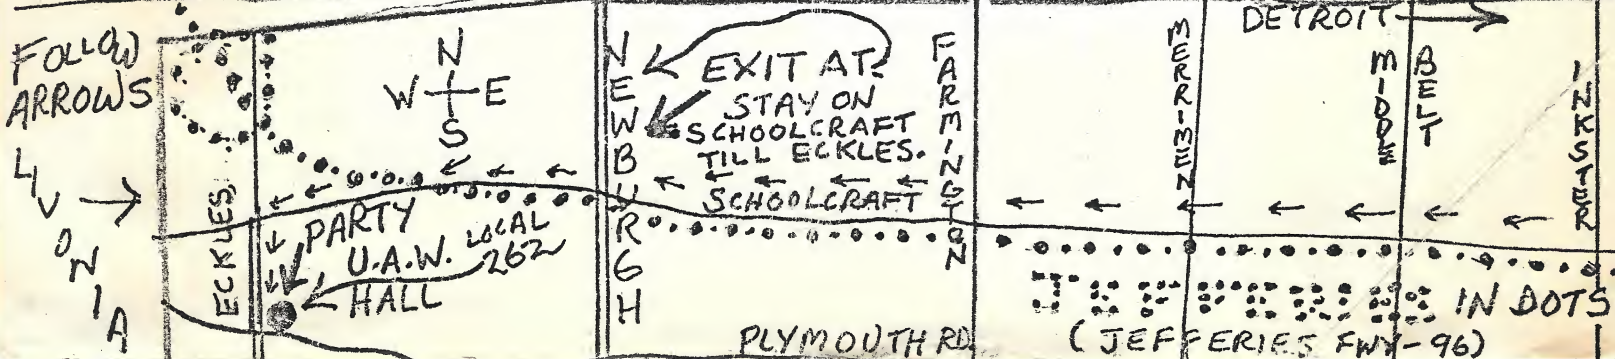 FOLLOW
ARROWS
LIVONIA
ECKLES
N
W E
S
PARTY
U.A.W. LOCAL 262
HALL
NEWBURGH
EXIT AT
STAY ON
SCHOOLCRAFT
TILL ECKLES.
SCHOOLCRAFT
FARMINGTON
PLYMOUTH RD
MERRIMEN
DETROIT
MIDDLE
BELT
INKSTER
JEFFERIES IN DOTS
(JEFFERIES FWY-96)